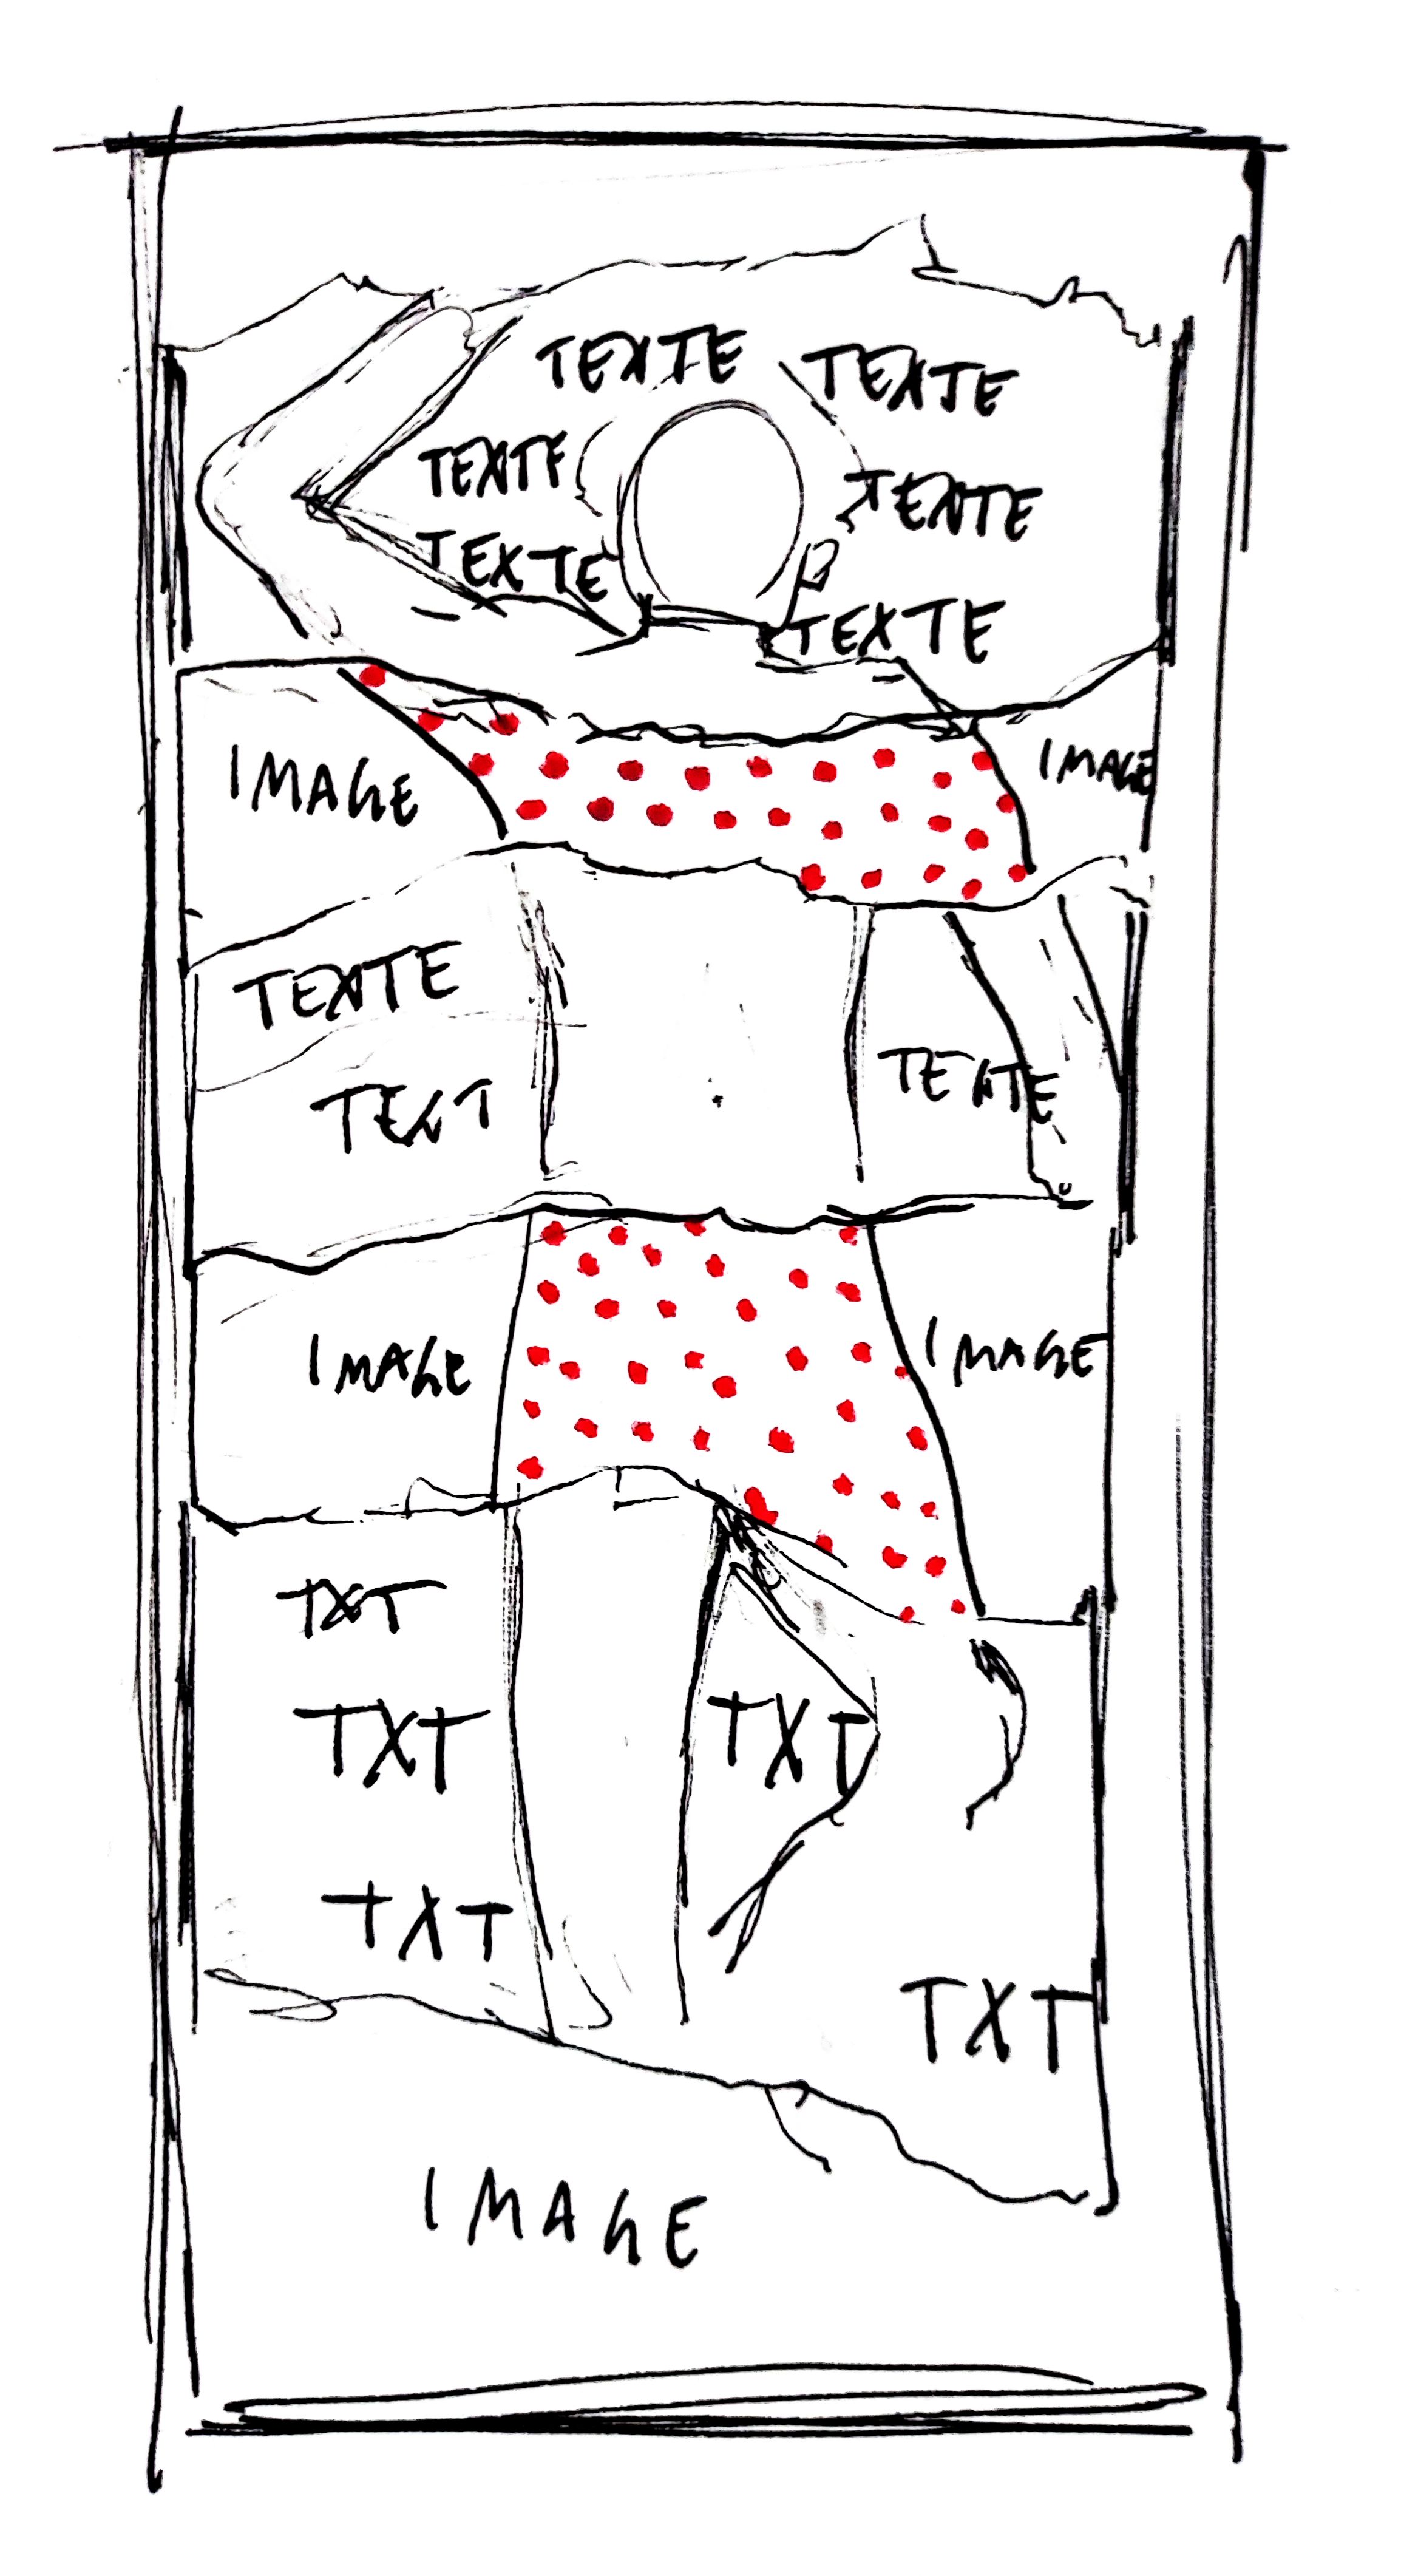 TEXTE TEXTE
TEXTE TEXTE
TEXTE
TEXTE
IMAGE IMAGE
TEXTE
TEXT TEXTE
IMAGE IMAGE
TXT
TXT TXT
TXT
TXT
IMAGE